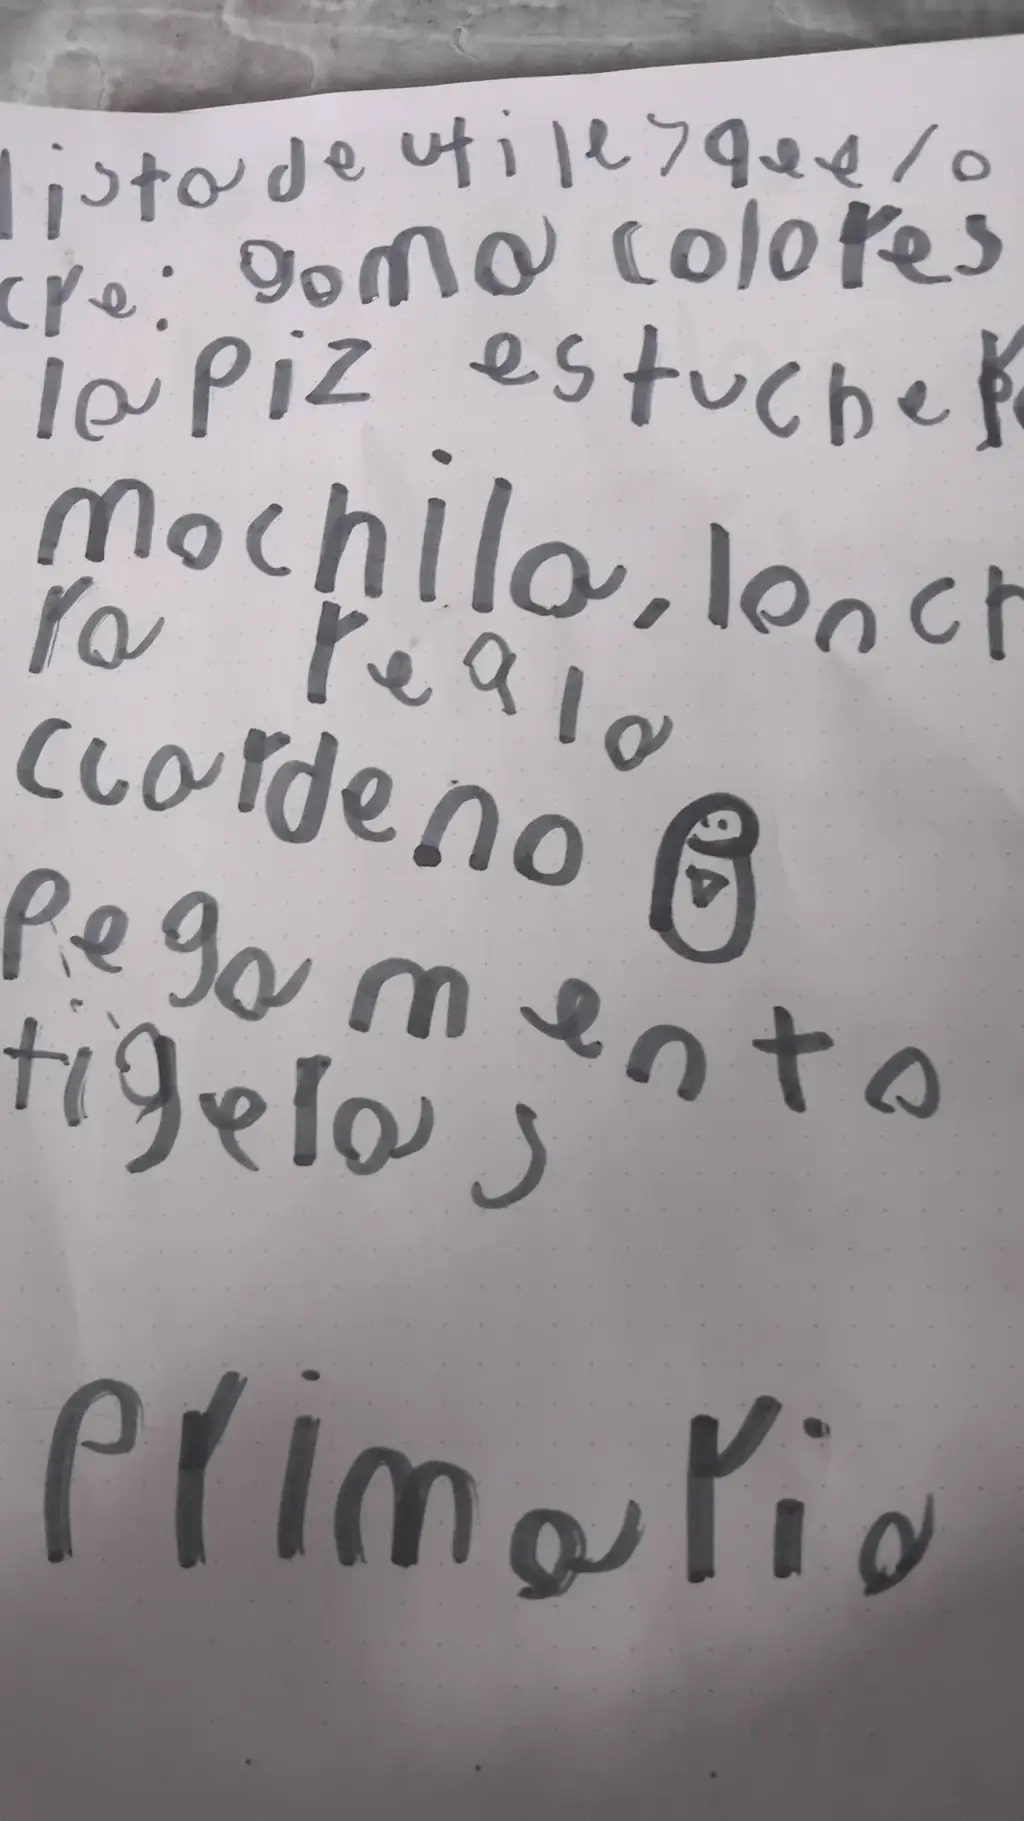 lista de utiles qee lo
cre: goma colores
lapiz estuche
mochila, lonch
ra regla
cuardeno
pegamento
tigera,
primaria